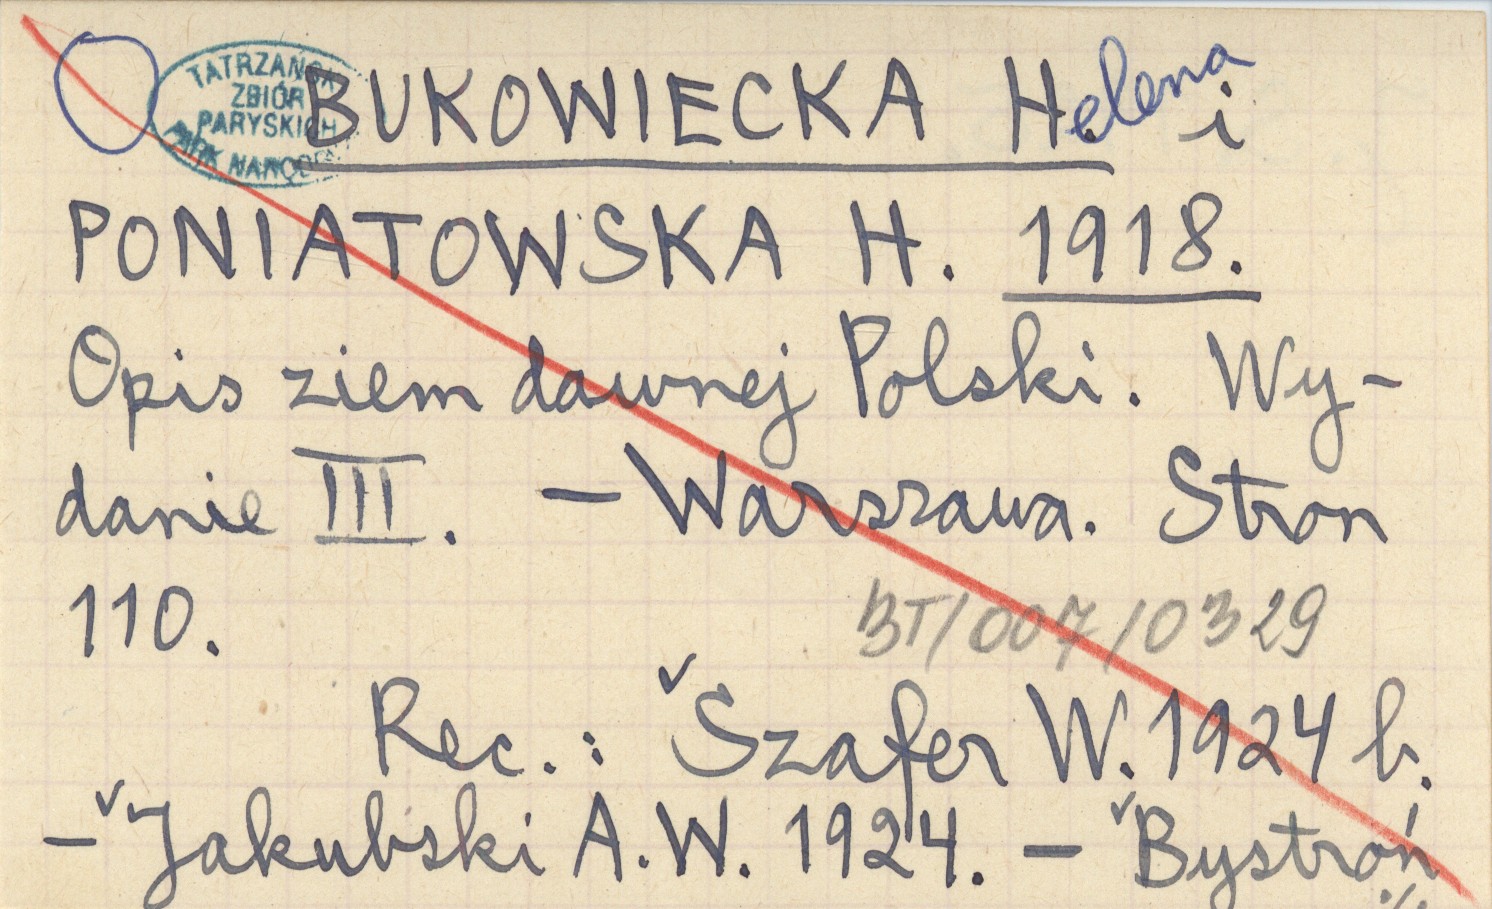 TATRZAŃSKI
ZBIÓR
PARYSKICH
PARK NARODOWY
BUKOWIECKA H. elena i
PONIATOWSKA H. 1918.
Opis ziem dawnej Polski. Wy-
danie III. — Warszawa. Stron
110.
BT/007/0329
Rec.: Szafer W. 1924 b.
— Jakubski A.W. 1924. — Bystroń
./.